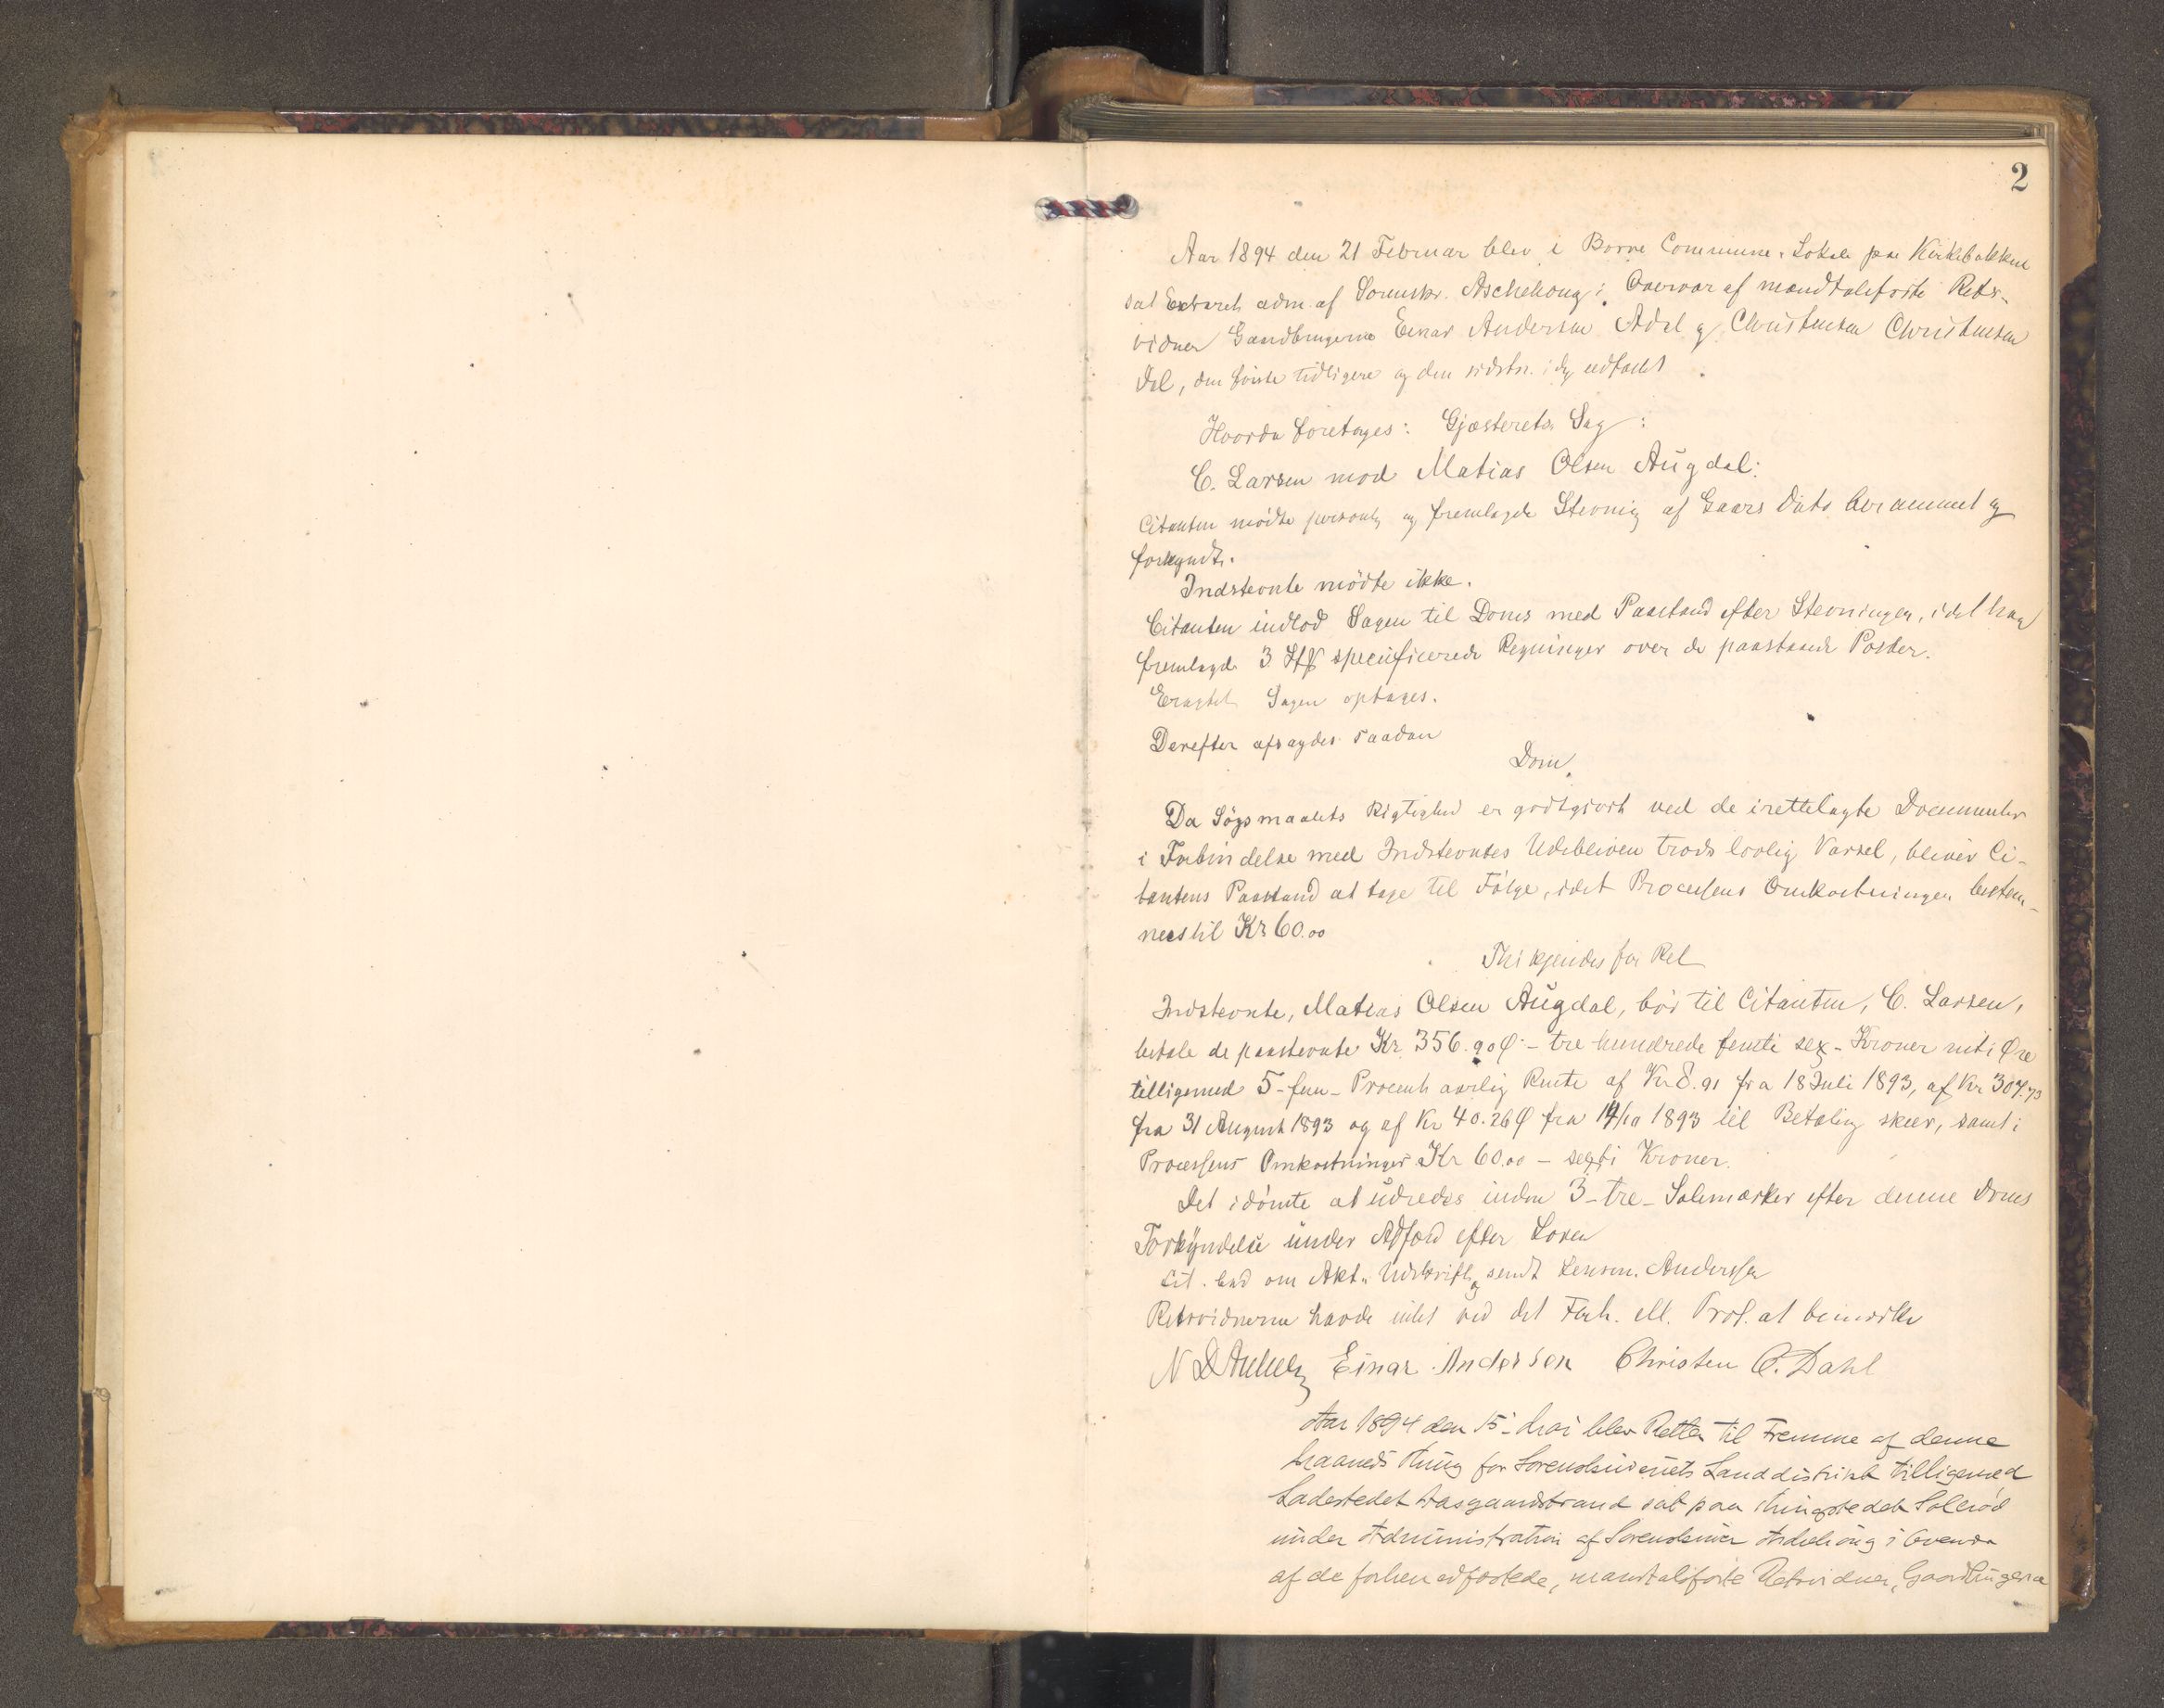 2
Aar 1894 den 21 Februar blev i Borre Communes Lokale paa Kirkebakken
sat Extraret adm. af Sorenskr. Aschehoug i Overvær af mandtalsførte Rets-
vidner Gaardbrugerne Einar Andersen Adal og Christensen Christensen
Dal, den første tidligere og den sidstn. i dag edfæstet
Hvorda foretages: Gjæsterets Sag:
C. Larsen mod Matias Olsen Augdal:
Citanten mødte personlig og fremlagde Stevning af Gaars Dato berammet og
forkyndt.
Indstevnte mødte ikke.
Citanten indlod Sagen til Doms med Paastand efter Stevningen, idet han
fremlagde 3 Stk specificerede Regninger over de paastaaede Poster.
Eragtet Sagen optages.
Derefter afsagdes saadan
Dom.
Da Søgsmaalets Rigtighed er godtgjort ved de irettelagte Documenter
i Forbindelse med Indstevntes Udebliven trods lovlig Varsel, bliver Ci-
tantens Paastand at tage til Følge, idet Processens Omkostninger bestem-
mes til Kr 60.00
Thi kjendes for Ret
Indstevnte, Matias Olsen Augdal, bør til Citanten, C. Larsen,
betale de paastevnte Kr. 356.90 Ø - tre hundrede femti sex - Kroner niti Øre
tilligemed 5 - fem - Procent aarlig Rente af Kr 8.91 fra 18 Juli 1893, af Kr 307.73
fra 31 August 1893 og af Kr 40.26 Ø fra 14/10 1893 til Betaling skeer, samt i
Processens Omkostninger Kr 60.00 - sexti Kroner.
Det idømte at udredes inden 3 - tre - Solemærker efter denne Doms
Forkyndelse under Adfærd efter Loven
Cit. bad om Akt. Udskrift og sendt Lensm. Anderssen
Retsvidnerne havde intet ved det Forh. ell. Prot. at bemærke
Einar Anderson Christen C. Dahl
Aar 1894 den 15 - Mai blev Retten til Fremme af denne
Maaneds Thing for Sorenskriveriets Landdistrikt tilligemed
Ladestedet Aasgaardstrand sat paa Thingstedet Solerød
under Administration af Sorenskriver Aschehoug i Overvær
af de forhen edfæstede, mandtalsførte Retsvidner, Gaardbrugerne